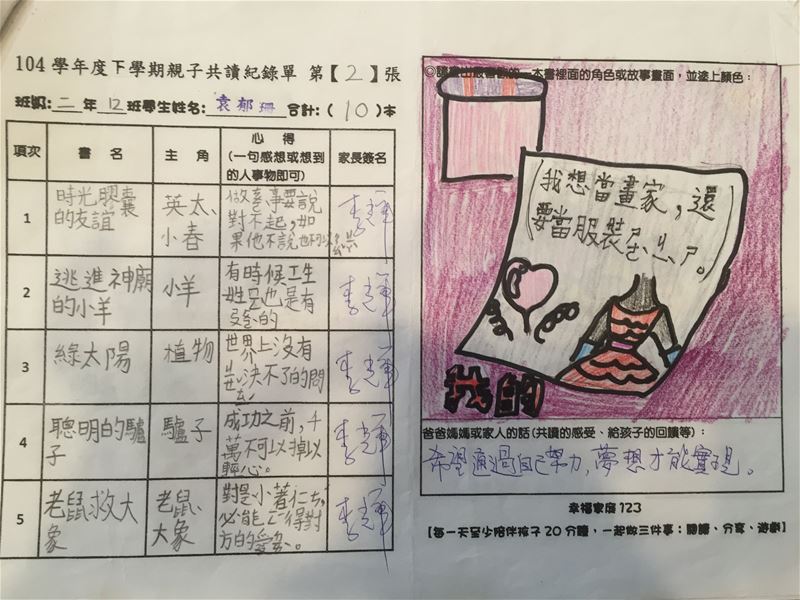 104 學年度下學期親子共讀紀錄單 第【2】張
班級:二年12班學生姓名:袁郁珊 合計:(10)本
項次 書名 主角 心得 (一句感想或想到的人事物即可) 家長簽名
1 時光膠囊的友誼 英太、小春
做錯事要說
對不起,如
2 逃進神廟的小羊 小羊
有時候
也是有
3 綠太陽 植物
世界上沒有
決不了的問
4 聰明的驢子 驢子
成功之前,千
萬不可以掉以
輕心。
5 老鼠救大象 老鼠、大象
必能 得對
方的愛
◎請畫出最喜歡的一本書裡面的角色或故事畫面,並塗上顏色:
我想當畫家,還
要當服裝ㄕㄜˋㄐㄧˋㄕ。
爸爸媽媽或家人的話(共讀的感受、給孩子的回饋等):
希望通過自己努力,夢想才能實現。
幸福家庭 123
【每一天至少陪伴孩子 20 分鐘,一起做三件事:閱讀、分享、遊戲】